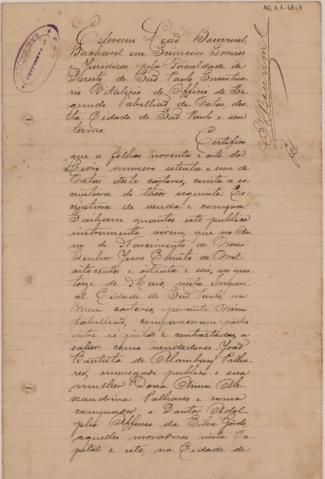 Estevam Leão Bourroul,
Bacharel em Sciencias Sociaes
e Juridicas pela Faculdade de
Direito de São Paulo Serventua-
rio Vitalicio do Officio de Se-
gundo Tabellião de Notas, des-
ta Cidade de São Paulo e seu
termo.
Certifico
que a folhas noventa e oito do
Livro numero setenta e um de
Notas deste cartorio, consta a es-
criptura do theor seguinte: Es-
criptura de venda e compra
Saibam quantos este publico
instrumento virem, que no An-
no do Nascimento de Nosso
Senhor Jesus Christo de Mil
oitocentos e setenta e seis, aos qua-
torze de Maio, nesta Imperi-
al Cidade de São Paulo, em
meu cartorio, perante mim
tabellião, compareceram partes
entre si justas e contractadas, a
saber como vendedores João
Baptista de Alambary Palha-
res, empregado publico e sua
mulher Dona Anna Ale-
xandrina Palhares e como
comprador, o Doutor Adol-
pho Affonso da Silva Gordo
aquelles moradores nesta Ca-
pital e este, na Cidade de